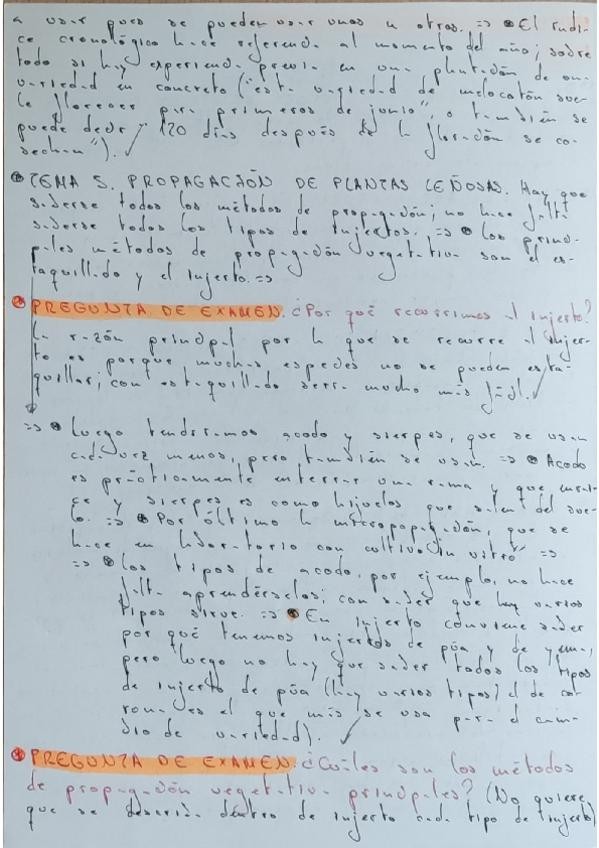 a usar pues se pueden usar unos u otros. => • El índi-
ce cronológico hace referencia al momento del año; sobre
todo si hay experiencia previa en una plantación de una
variedad en concreto ("esta variedad de melocotón sue-
le florecer para primeros de junio", o también se
puede decir "120 días después de la floración se co-
sechan"). ✓
• TEMA 5. PROPAGACIÓN DE PLANTAS LEÑOSAS. Hay que
saberse todos los métodos de propagación; no hace falta
saberse todos los tipos de injertos. => • Los princi-
pales métodos de propagación vegetativa son el es-
taquillado y el injerto. =>
• PREGUNTA DE EXAMEN. ¿Por qué recurrimos al injerto?
La razón principal por la que se recurre al injer-
to es porque muchas especies no se pueden esta-
quillar; con estaquillado sería mucho más fácil. ✓
=> • Luego tendríamos acodo y sierpes, que se usan
cada vez menos, pero también se usan. => • Acodo
es prácticamente enterrar una rama y que enraí-
ce y sierpes es como hijuelos que salen del sue-
lo. => • Por último la micropropagación, que se
hace en laboratorio con cultivo "in vitro" =>
=> • Los tipos de acodo, por ejemplo, no hace
falta aprendérselos; con saber que hay varios
tipos sirve. => • En injerto conviene saber
por qué tenemos injertos de púa y de yema,
pero luego no hay que saber todos los tipos
de injerto de púa (hay varios tipos; el de co-
rona es el que más se usa para el cam-
bio de variedad). ✓
• PREGUNTA DE EXAMEN. ¿Cuáles son los métodos
de propagación vegetativa principales? (No quiere
que se describa dentro de injerto cada tipo de injerto)